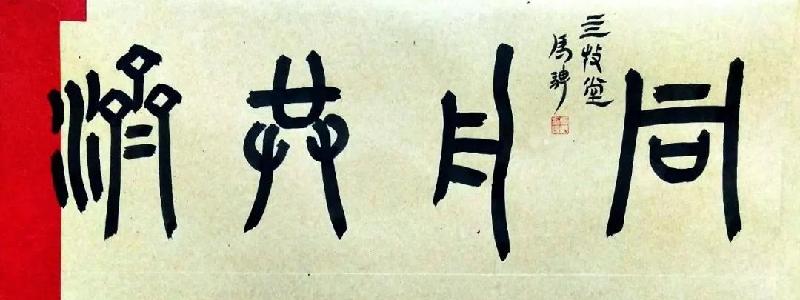 同舟共濟
三牧堂
馬騁